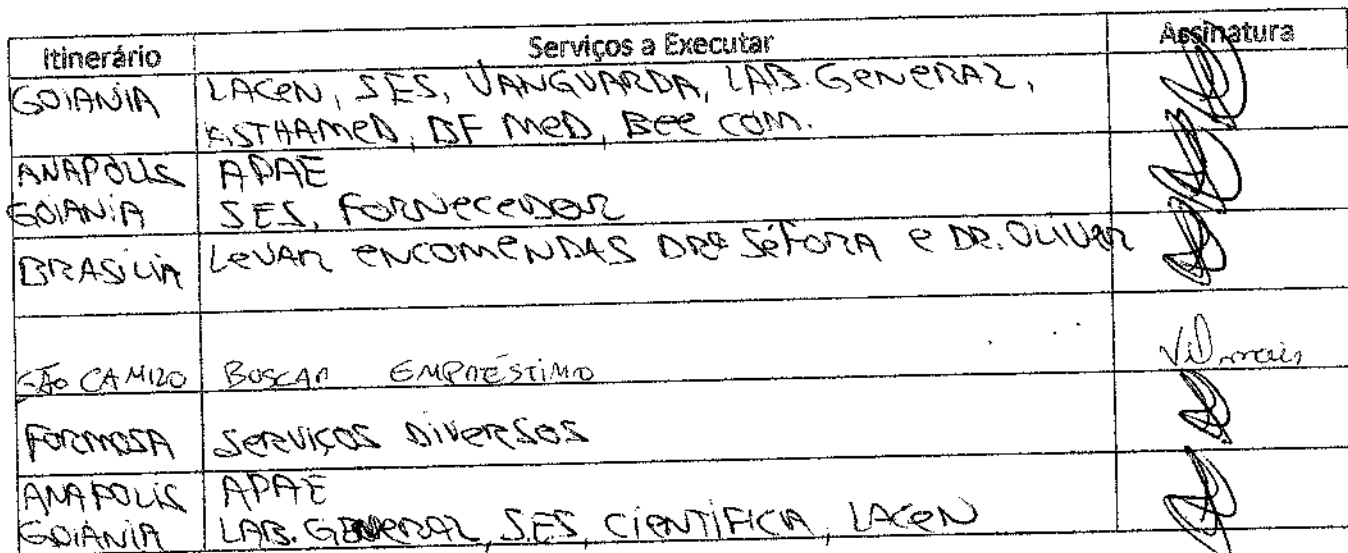 Itinerário Serviços a Executar Assinatura
GOIÂNIA LACEN, SES, VANGUARDA, LAB. GENERAL,
ASTHAMED, BF MED, Bee COM.
ANAPOLIS APAE
GOIÂNIA SES, FORNECEDOR
BRASILIA LEVAR ENCOMENDAS DRª SÉFORA E DR. OLIVER
SÃO CAMILO BUSCAR EMPRÉSTIMO
FORMOSA SERVIÇOS DIVERSOS
ANAPOLIS APAE
GOIÂNIA LAB. GENERAL, SES, CIENTÍFICA, LACEN